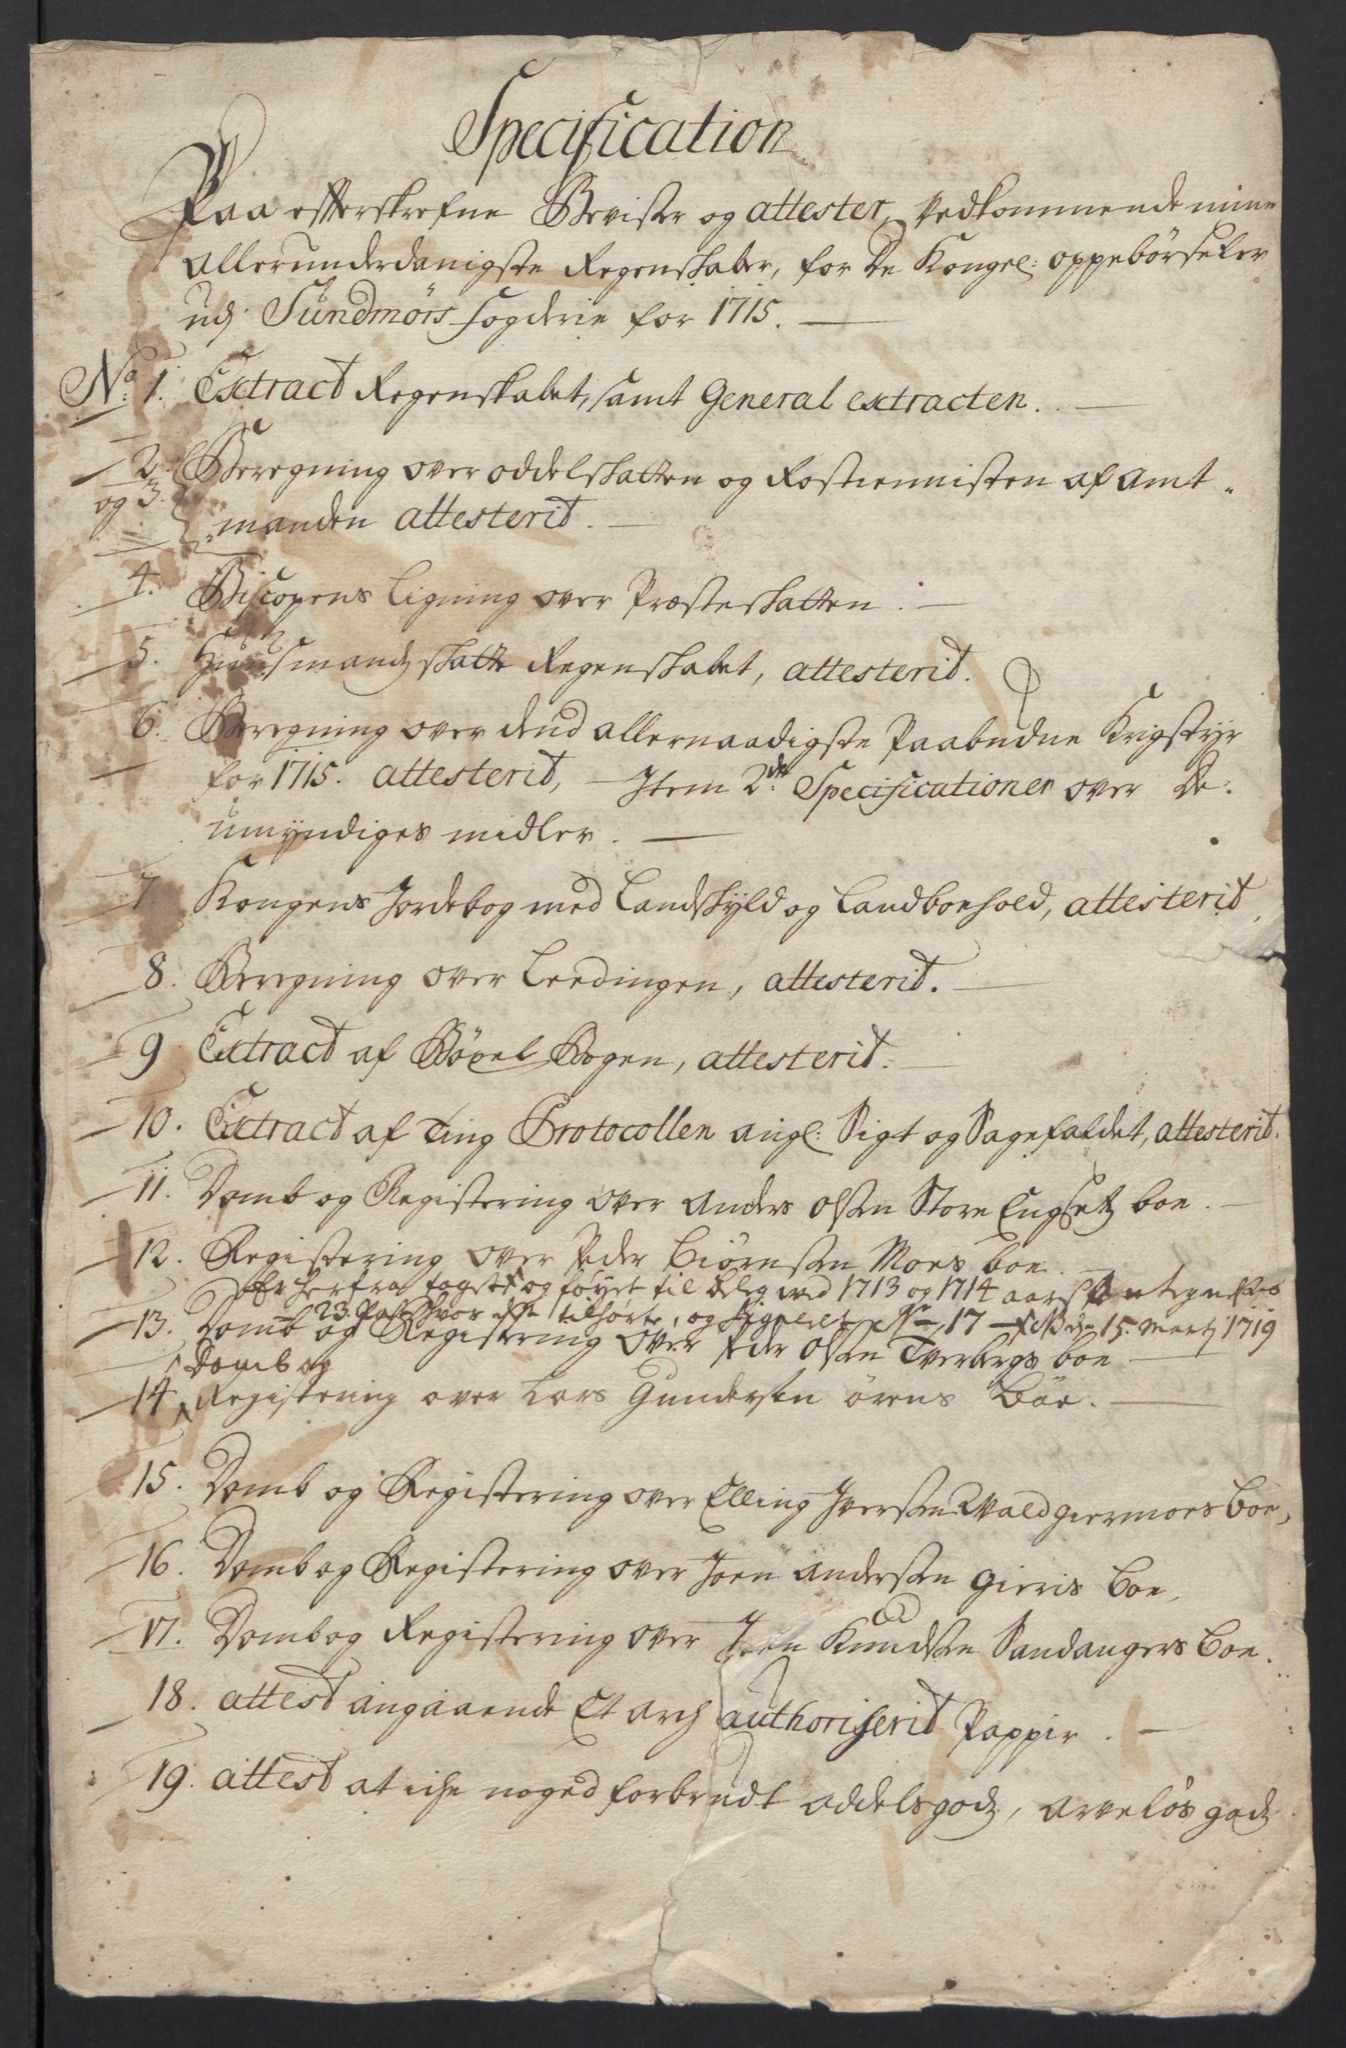 Specification
Paa efterskrefne Beviiser og attester, Vedkommende mine
allerunderdanigste Regenskaber, for De Kongel: oppebørseler
udj Sundmørs fogderie for 1715.
No: 1. Extract Regenskabet, samt General extracten.
2 og 3. Beregning over oddelskatten og Rostiennisten af Amt-
manden attesterit.
4. Biscopens Ligning over Præsteskatten.
5. Huusmandz skatte Regenskabet, attesterit.
6. Beregning over dend allernaadigste Paabudne Krigstyr
for 1715. attesterit, Item 2de Specificationer over De
umyndiges midler.
7 Kongens Jordebog med Landskyld og Landboehold, attesterit
8. Beregning over Leedingen, attesterit.
9 Extract af Bøxel Bogen, attesterit.
10. Extract af Ting Protocollen angl: Sigt og Sagefaldet, attesterit.
11. Domb og Registering over Anders Olsen Store Engsetz boe.
12. Registering over Peder Biørnsen Moes boe.
Er herfra tagett og føyet til beleg ved 1713 og 1714 aars Antegnelses
23 Post hvor det tilhørte, og Signeret No 17 NB d. 15. Martj 1719
13. Domb og Registering over Peder Olsen Tverbergs boe
Domb og
14 Registering over Lars Gundersen Ørens Boe.
15. Domb og Registering over Elling Iversen Waldgiermoes boe,
16. Domb og Registering over Joen Andersen Gieris boe,
17. Domb og Registering over Joen Knudsen Sandangers boe.
18. attest angaaende Et arch authoriserit Pappir.
19. attest at iche noged forbrudt oddelsgodz, arveløs godz